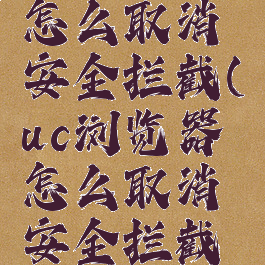 怎么取消
安全拦截(
uc浏览器
怎么取消
安全拦截